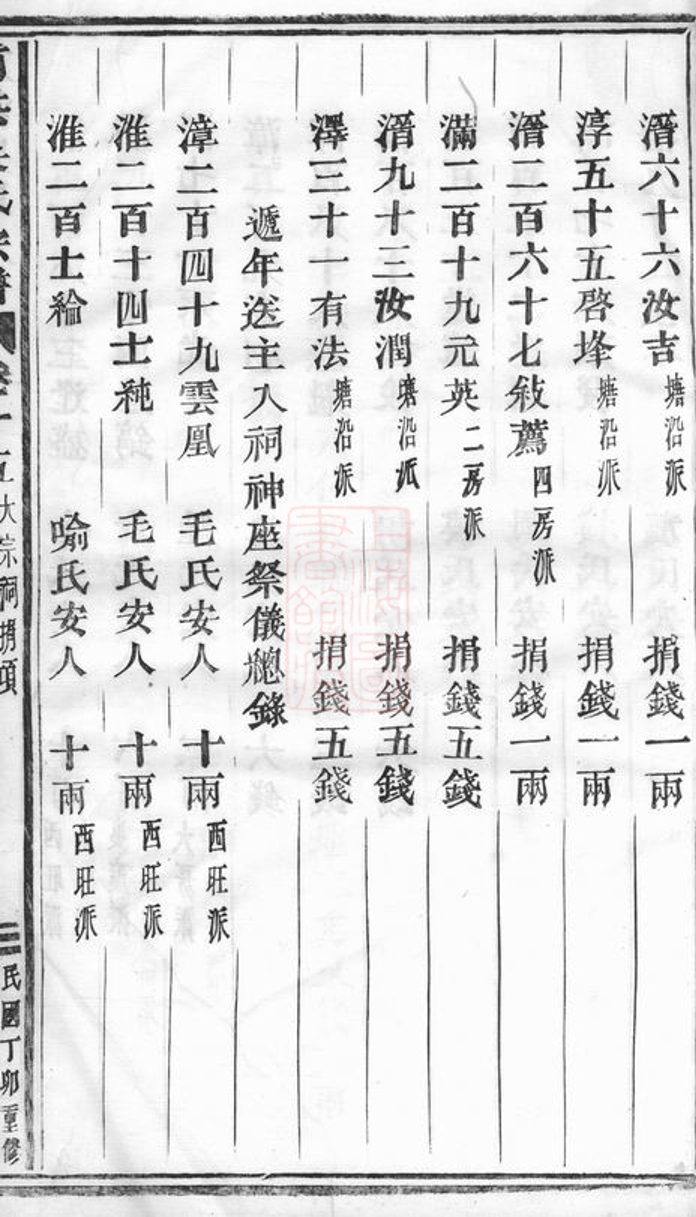 濳六十六汝吉塘沿派 捐錢一兩
淳五十五啓埄塘沿派 捐錢一兩
濳二百六十七敍薦四房派 捐錢一兩
滿二百十九元英二房派 捐錢五錢
濳九十三汝潤塘沿派 捐錢五錢
澤三十一有法塘沿派 捐錢五錢
遞年送主入祠神座祭儀緫錄
漳二百四十九雲凰 毛氏安人 十兩西旺派
淮二百十四士純 毛氏安人 十兩西旺派
淮二百士綸 喻氏安人 十兩西旺派
氏宗譜 卷十五大宗祠捐項 民國丁卯重修